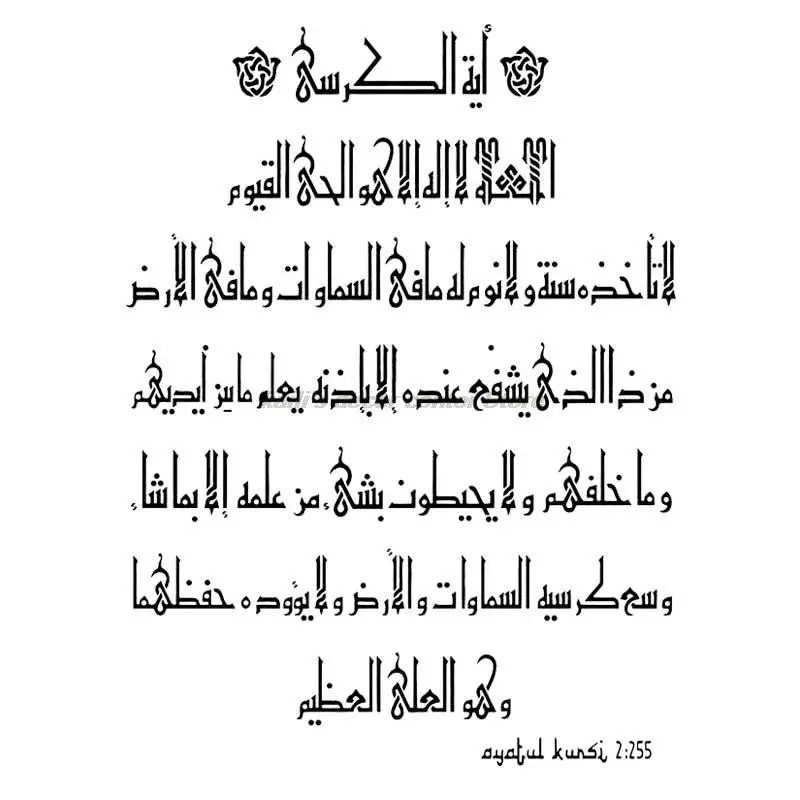 أية الكرسى
الله لا إله إلا هو الحى القيوم
لا تأخذه سنة و لا نوم له ما فى السماوات و ما فى الأرض
من ذا الذى يشفع عنده إلا بإذنه يعلم ما بين أيديهم
و ما خلفهم و لا يحيطون بشىء من علمه إلا بما شاء
وسع كرسيه السماوات و الأرض و لا يؤوده حفظهما
و هو العلى العظيم
ayatul kursi 2:255